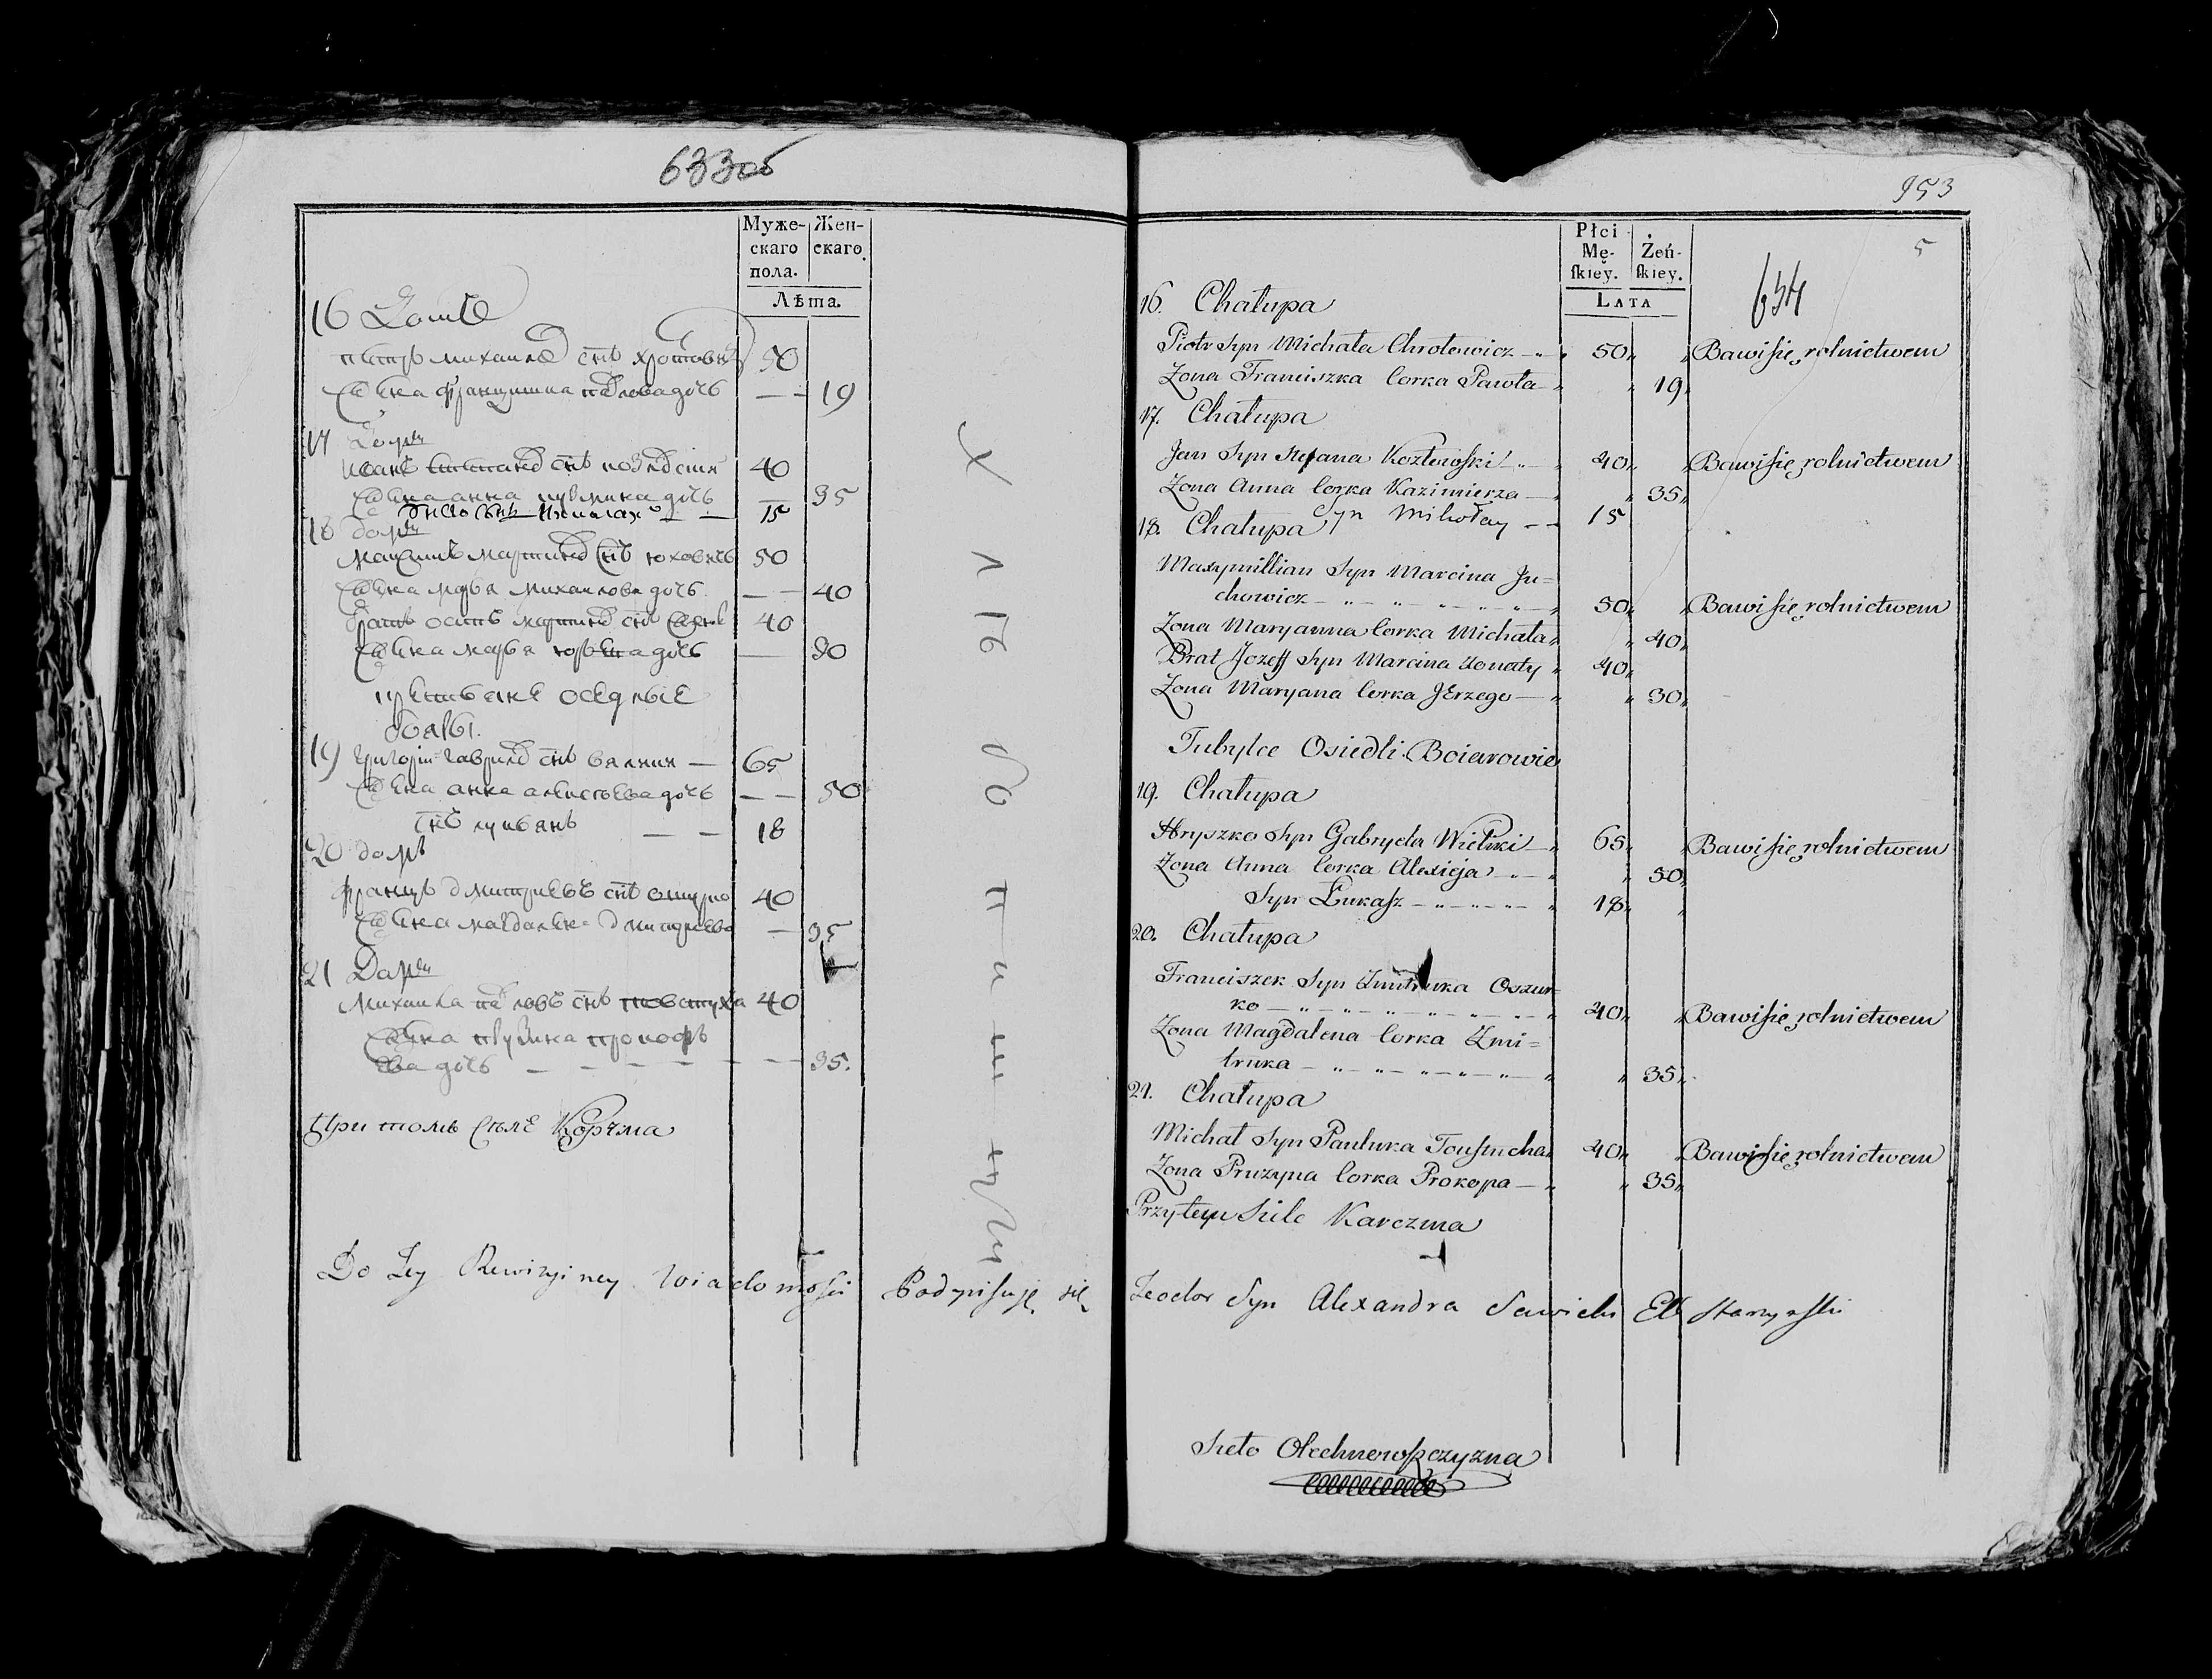 633об
Муже-
скаго
пола.
Жен-
скаго.
Лѣта.
16 Домъ
петръ михаилов снъ хротович 50
жена францишка павлова дочь — 19
17 Домъ
иванъ степанов снъ 40
жена анна дочь — 35
15
18 домъ
мартинов снъ юхович 50
жена марья михаилова дочь — 40
братъ осипъ мартинов снъ 40
жена марья юрьева дочь — 30
оседлые
бояры.
19 григорій гаврилов снъ — 65
жена анна алексеева дочь — — 50
снъ лукьянъ — — 18
20 домъ
францъ дмитриевъ снъ ошурко 40
жена магдалена дмитриева — 35
21 Домъ
михаила павловъ снъ 40
жена прузина прокофь
ева дочь — — — — — 35.
При томъ селе Корчма
953
5
634
Płci
Mę-
ſkiey.
Żeń-
ſkiey.
LATA
16. Chałupa
Piotr Syn Michała Chrotowicz 50 Bawi się rolnictwem
Zona Franciszka Corka Pawła 19
17. Chałupa
Jan Syn Stefana Kozłowſki 40 Bawi się rolnictwem
Zona Anna Corka Kazimierza 35
Syn Mikołay 15
18. Chałupa
Maxymillian Syn Marcina Ju=
chowicz 50 Bawi się rolnictwem
Zona Maryanna Corka Michała 40
Brat Jozeff Syn Marcina żonaty 40
Zona Maryana Corka Jerzego 30
Tubylce Osiedli Boiarowie
19. Chałupa
Hryszko Syn Gabryela Wieliki 65 Bawi się rolnictwem
Zona Anna Corka Alexieja 50
Syn Łukaſz 18
20. Chałupa
Franciszek Syn Zmitruka Oszur-
ko 40 Bawi się rolnictwem
Zona Magdalena Corka Zmi=
truka 35
21. Chałupa
Michał Syn Pauluka Touſtucha 40 Bawi się rolnictwem
Zona Pruzyna Corka Prokopa 35
Przytem Siele Karczma
Do Tey Rewizyiney Wiadomości Podpisuję się Teodor Syn Alexandra Sawicki
Sieło Olechnowſzczyzna